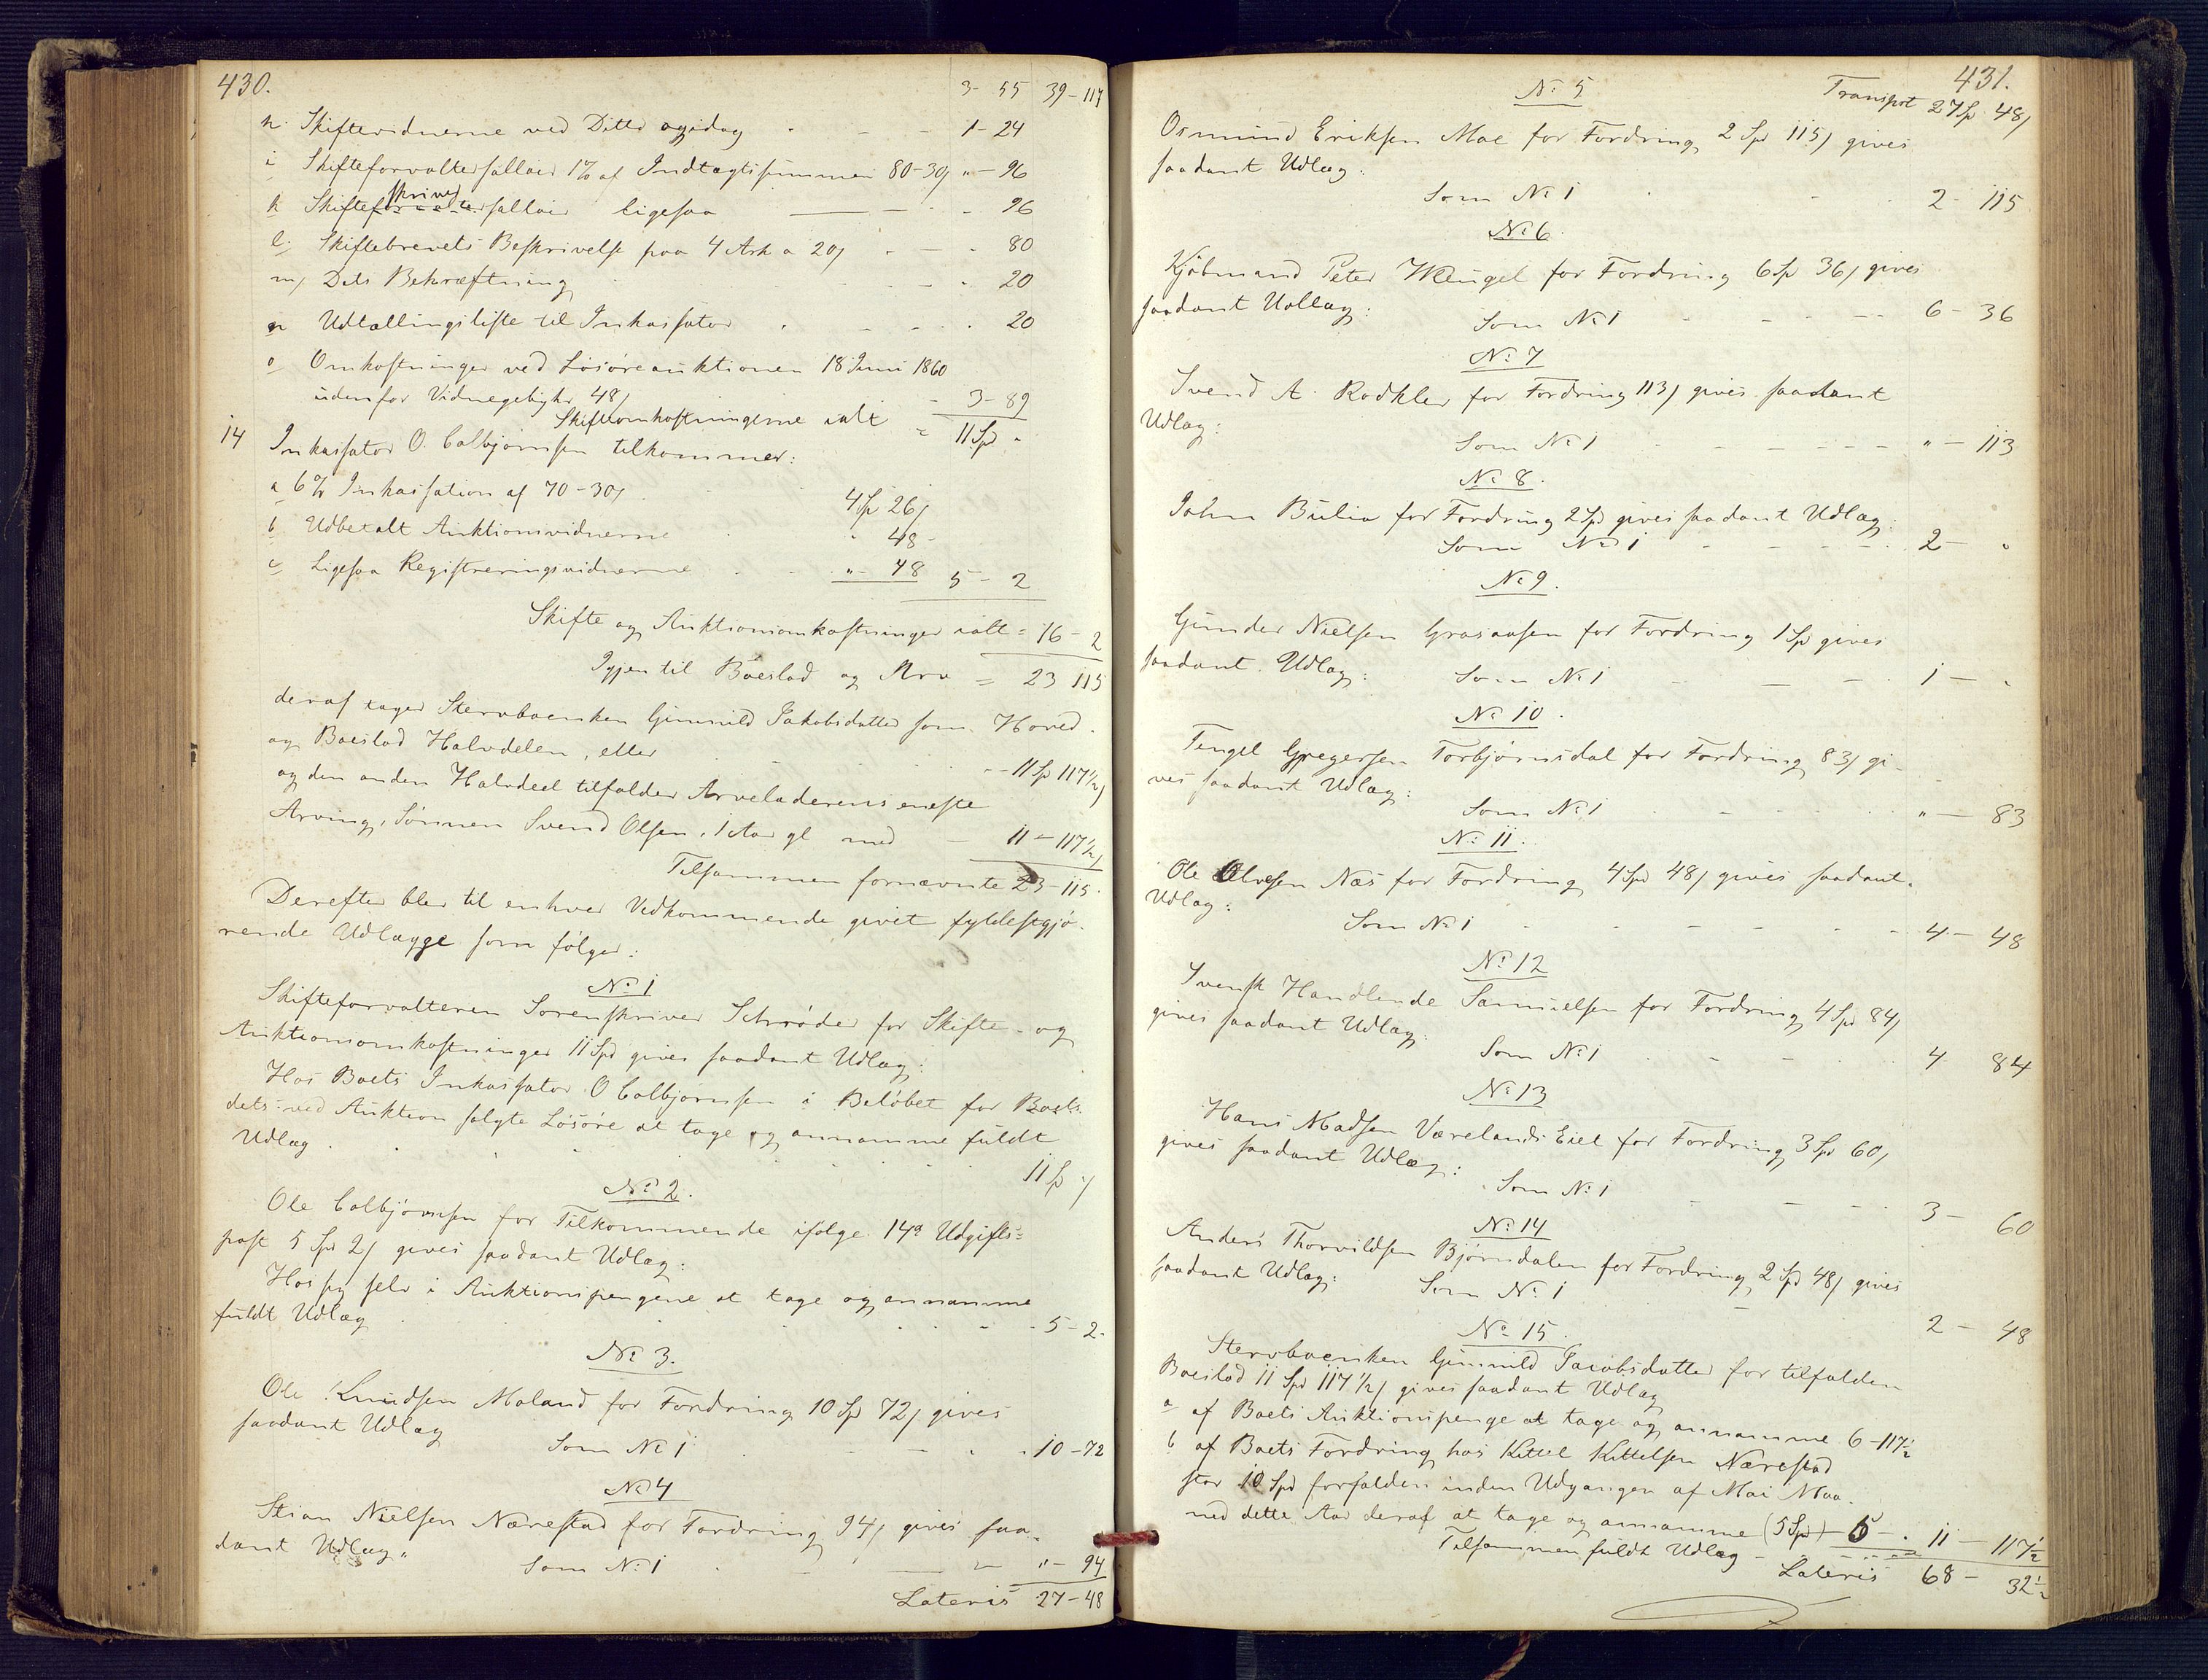 430.
3- 55 39-117
h. Skiftevidnerne ved Ditto og idag 1- 24
i Skifteforvaltersallair 1% af Indtægtssummen 80-30/ "- 96
k Skifteforvalterskriversallair ligesaa - 96
l. Skiftebrevets Beskrivelse paa 4 Ark a 20/ - 80
m/ Dets Bekræftning - 20
n Udtællingsliste til Inkassator - 20
o Omkostninger ved Løsøreauktionen 18 Juni 1860
udenfor Vidnegebyhr 48/ - 3-89
Skifteomkostningerne ialt = 11 Spd "
14 Inkassator O. Colbjørnsen tilkommer:
a 6% Inkassation af 70-30/ 4 Sp 26/
b Udbetalt Auktionsvidnerne " 48-
c Ligesaa Registreringsvidnerne "- 48 5- 2
Skifte og Auktionsomkostninger ialt = 16- 2
Igjen til Boeslod og Arv = 23 115
deraf tager Stervboenken Gunnild Jakobsdatter som Hoved-
og Boeslod Halvdelen, eller - 11 Sp 117½/
og den anden Halvdeel tilfalder Arveladerens eneste
Arving, Sønnen Svend Olsen, 1 Aar gl med - 11- 117½/
Tilsammen fornævnte 23-115.
Derefter blev til enhver Vedkommende givet fyldestgjø-
rende Udlægge som følger:
No 1
Skifteforvalteren Sorenskriver Schrøder for Skifte- og
Auktionsomkostninger 11 Spd gives saadant Udlæg:
Hos Boets Inkassator O Colbjørnsen i Beløbet for Boets
dets ved Auktion solgte Løsøre at tage og annamme fuldt
Udlæg 11 Sp "/
No 2.
Ole Colbjørnsen for Tilkommende ifølge 14de Udgifts-
post 5 Spd 2/ gives saadant Udlæg:
Hos sig selv i Auktionspengene at tage og annamme
fuldt Udlæg - 5-2.
No 3.
Ole Knudsen Moland for Fordring 10 Spd 72/ gives
saadant Udlæg
Som No 1 - 10-72
No 4
Stian Nielsen Nærestad for Fordring 94/ gives saa-
dant Udlæg"
Som No 1 "- 94
Lateris 27-48
431.
No 5 Transport 27 Sp 48/
Osmund Eriksen Moe for Fordring 2 Spd 115/ gives
saadant Udlæg:
Som No 1 2- 115
No 6.
Kjøbmand Peter Wengel for Fordring 6 Sp 36/ gives
saadant Udlæg:
Som No 1 6- 36
No 7
Svend A. Rodkler for Fordring 113/ gives saadant
Udlæg:
Som No 1 "- 113
No 8.
John Bulia for Fordring 2 Spd gives saadant Udlæg:
Som No 1 2- "
No 9.
Gunder Nielsen Grasaasen for Fordring 1 Spd gives
saadant Udlæg:
Som No 1 1- "
No 10.
Tengel Gregersen Torbjørnsdal for Fordring 83/ gi-
ves saadant Udlæg:
Som No 1 "- 83
No 11.
Ole Olvesen Næs for Fordring 4 Spd 48/ gives saadant
Udlæg:
Som No 1 4- 48
No 12
Svensk Handlende Samuelsen for Fordring 4 Spd 84/
gives saadant Udlæg:
Som No 1 4 84
No 13
Hans Madsen Værelands Eiel for Fordring 3 Spd 60/
gives saadant Udlæg:
Som No 1 3- 60
No 14
Anders Thorvildsen Bjørndalen for Fordring 2 Spd 48/ gives
saadant Udlæg:
Som No 1 2- 48
No 15.
Stervboenken Gunnild Jacobsdatter for tilfalden
Boeslod 11 Spd 117½/ gives saadant Udlæg
a af Boets Auktionspenge at tage og annamme 6-117½
b af Boets Fordring hos Kittel Kittelsen Nærestad
stor 10 Spd forfalden inden Udgangen af Mai Maa-
ned dette Aar deraf at tage og annamme (5 Spd) 5-.
Tilsammen fuldt Udlæg - 11- 117½
Lateris 68- 32½